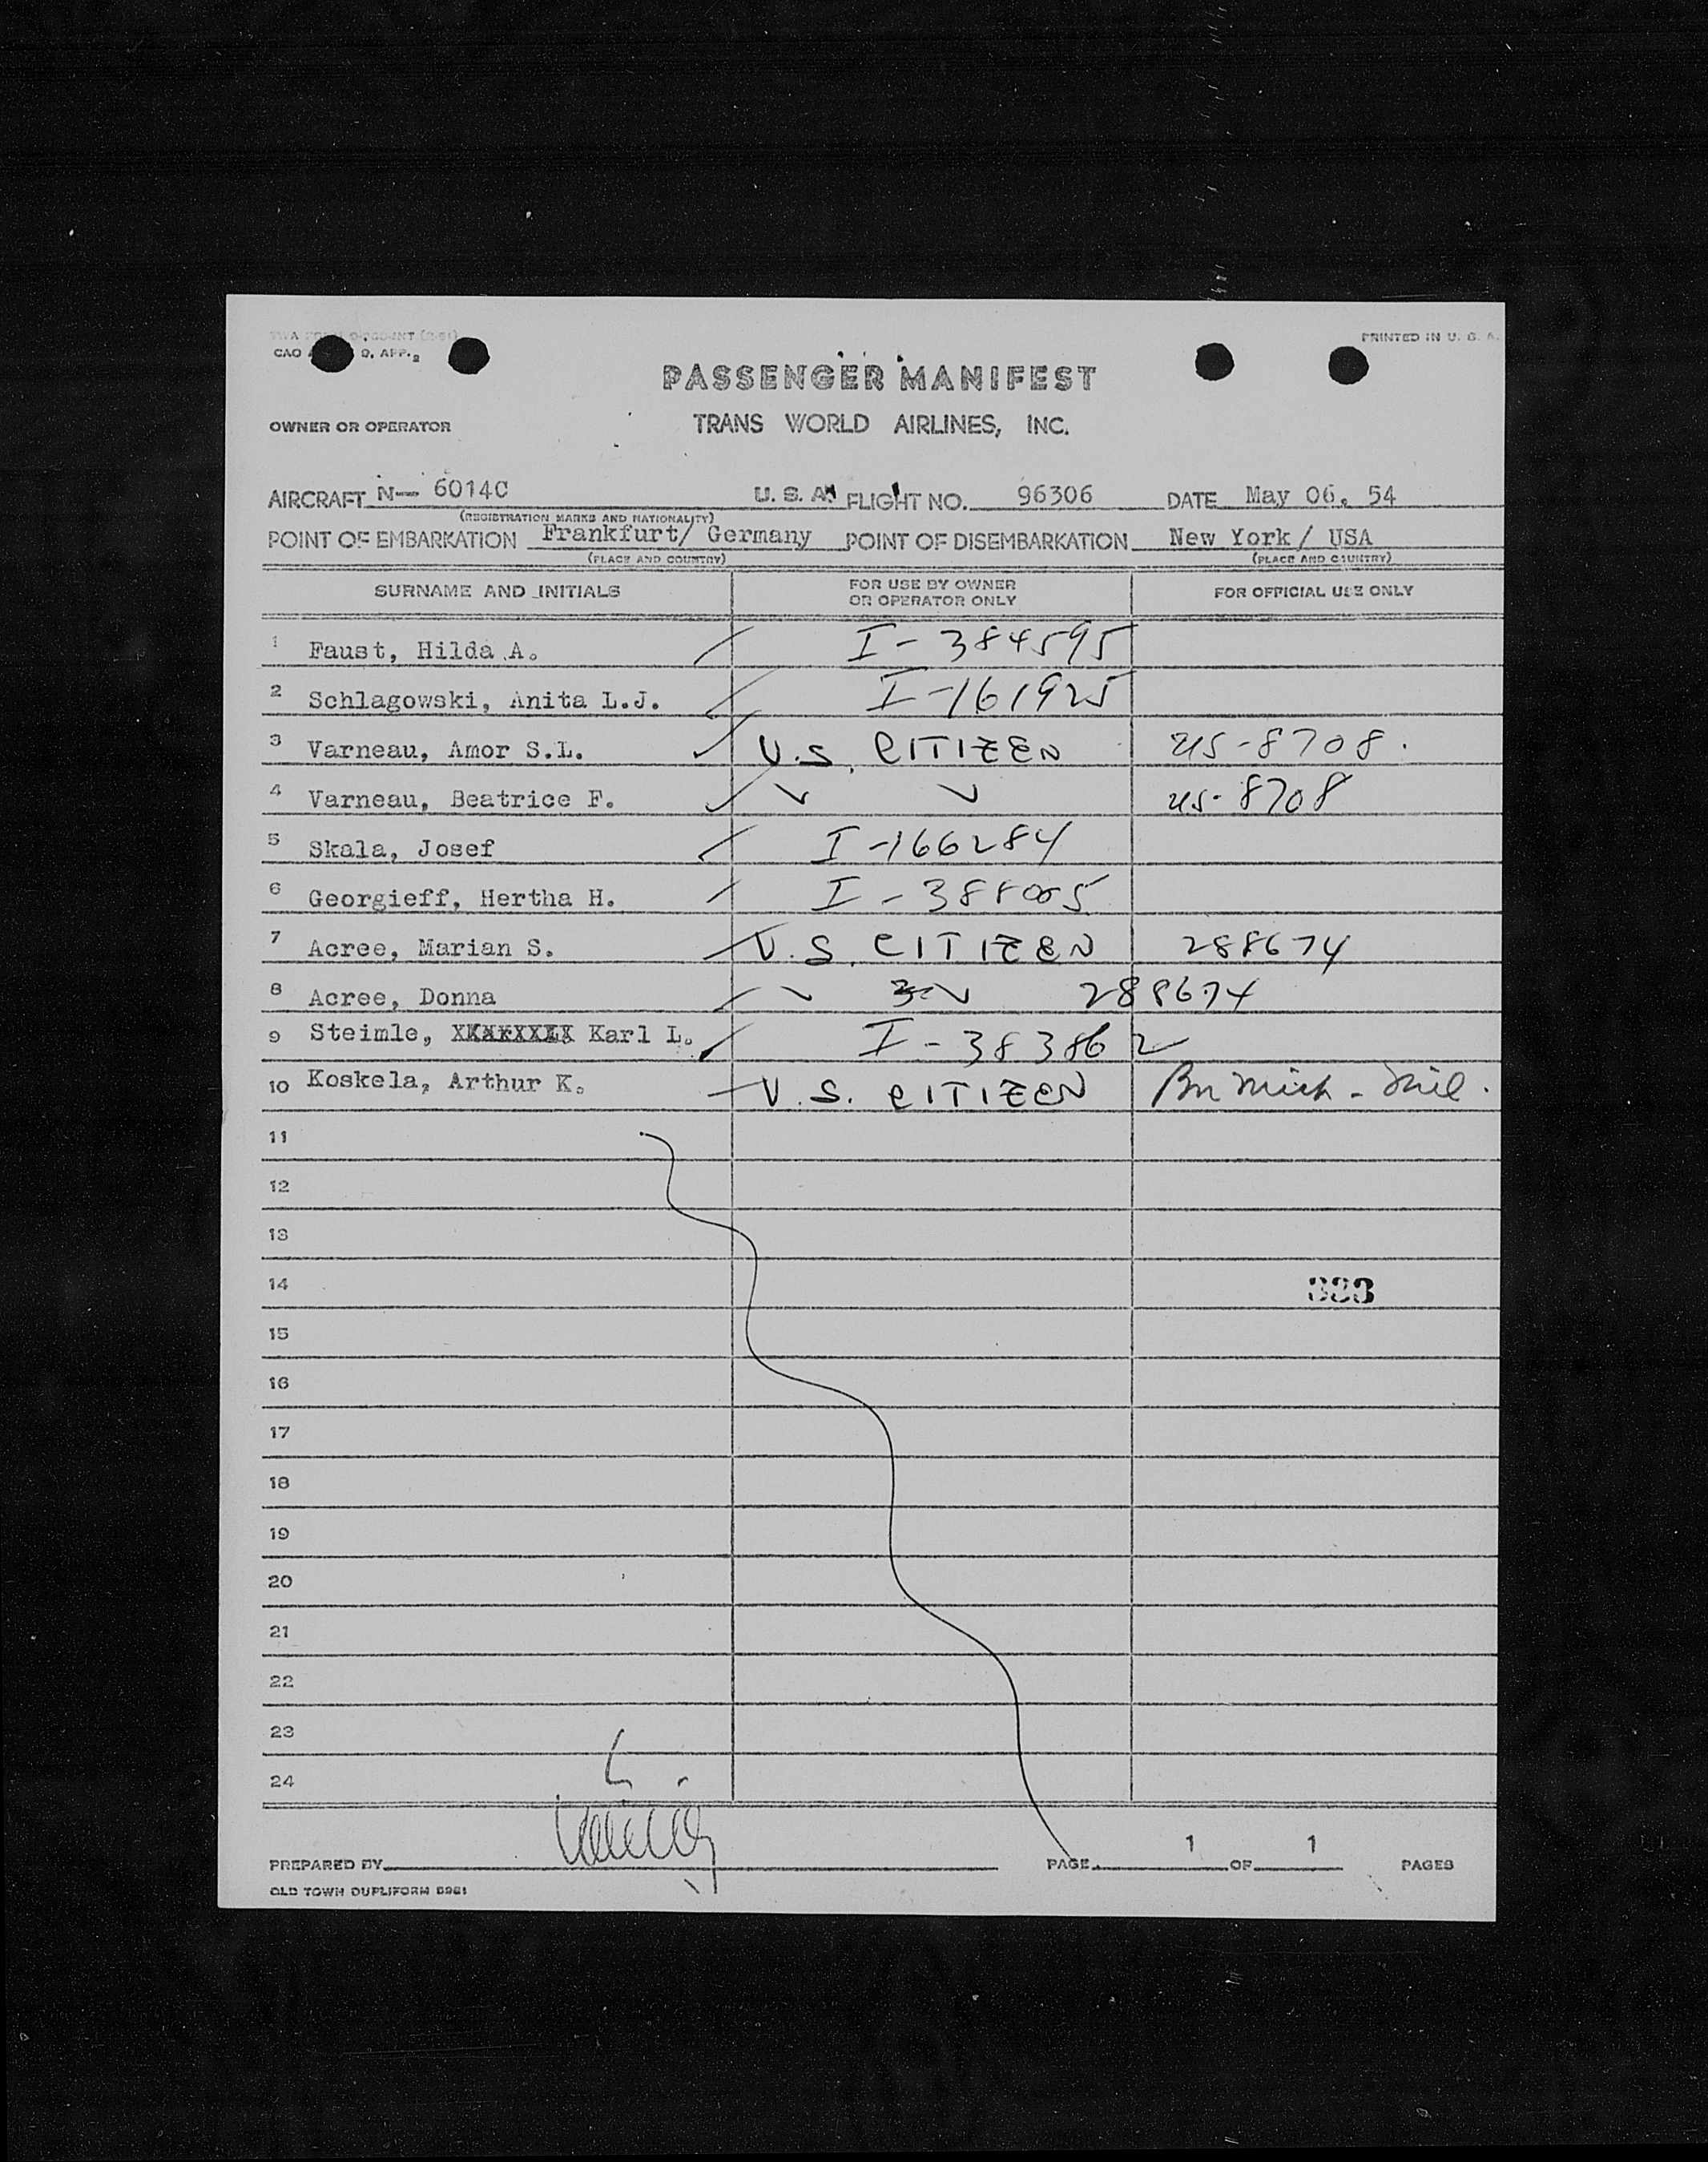 PRINTED IN U. S. A.
CAO
O, APP. 2
PASSENGER MANIFEST
OWNER OR OPERATOR
TRANS WORLD AIRLINES, INC.
AIRCRAFT N-- 6014C U. S. A. FLIGHT NO. 96306 DATE May 06, 54
(REGISTRATION MARKS AND NATIONALITY)
POINT OF EMBARKATION Frankfurt/ Germany POINT OF DISEMBARKATION New York / USA
(PLACE AND COUNTRY) (PLACE AND COUNTRY)
SURNAME AND INITIALS FOR USE BY OWNER OR OPERATOR ONLY FOR OFFICIAL USE ONLY
1 Faust, Hilda A. I - 384595
2 Schlagowski, Anita L.J. I-161925
3 Varneau, Amor S.L. U.S. CITIZEN US-8708.
4 Varneau, Beatrice F. US-8708
5 Skala, Josef I-166284
6 Georgieff, Hertha H. I - 388005
7 Acree, Marian S. U.S. CITIZEN 288674
8 Acree, Donna 288674
9 Steimle, Karl L. I - 383862
10 Koskela, Arthur K. U.S. CITIZEN
11
12
13
14 333
15
16
17
18
19
20
21
22
23
24
PREPARED BY PAGE 1 OF 1 PAGES
OLD TOWN DUPLIFORM